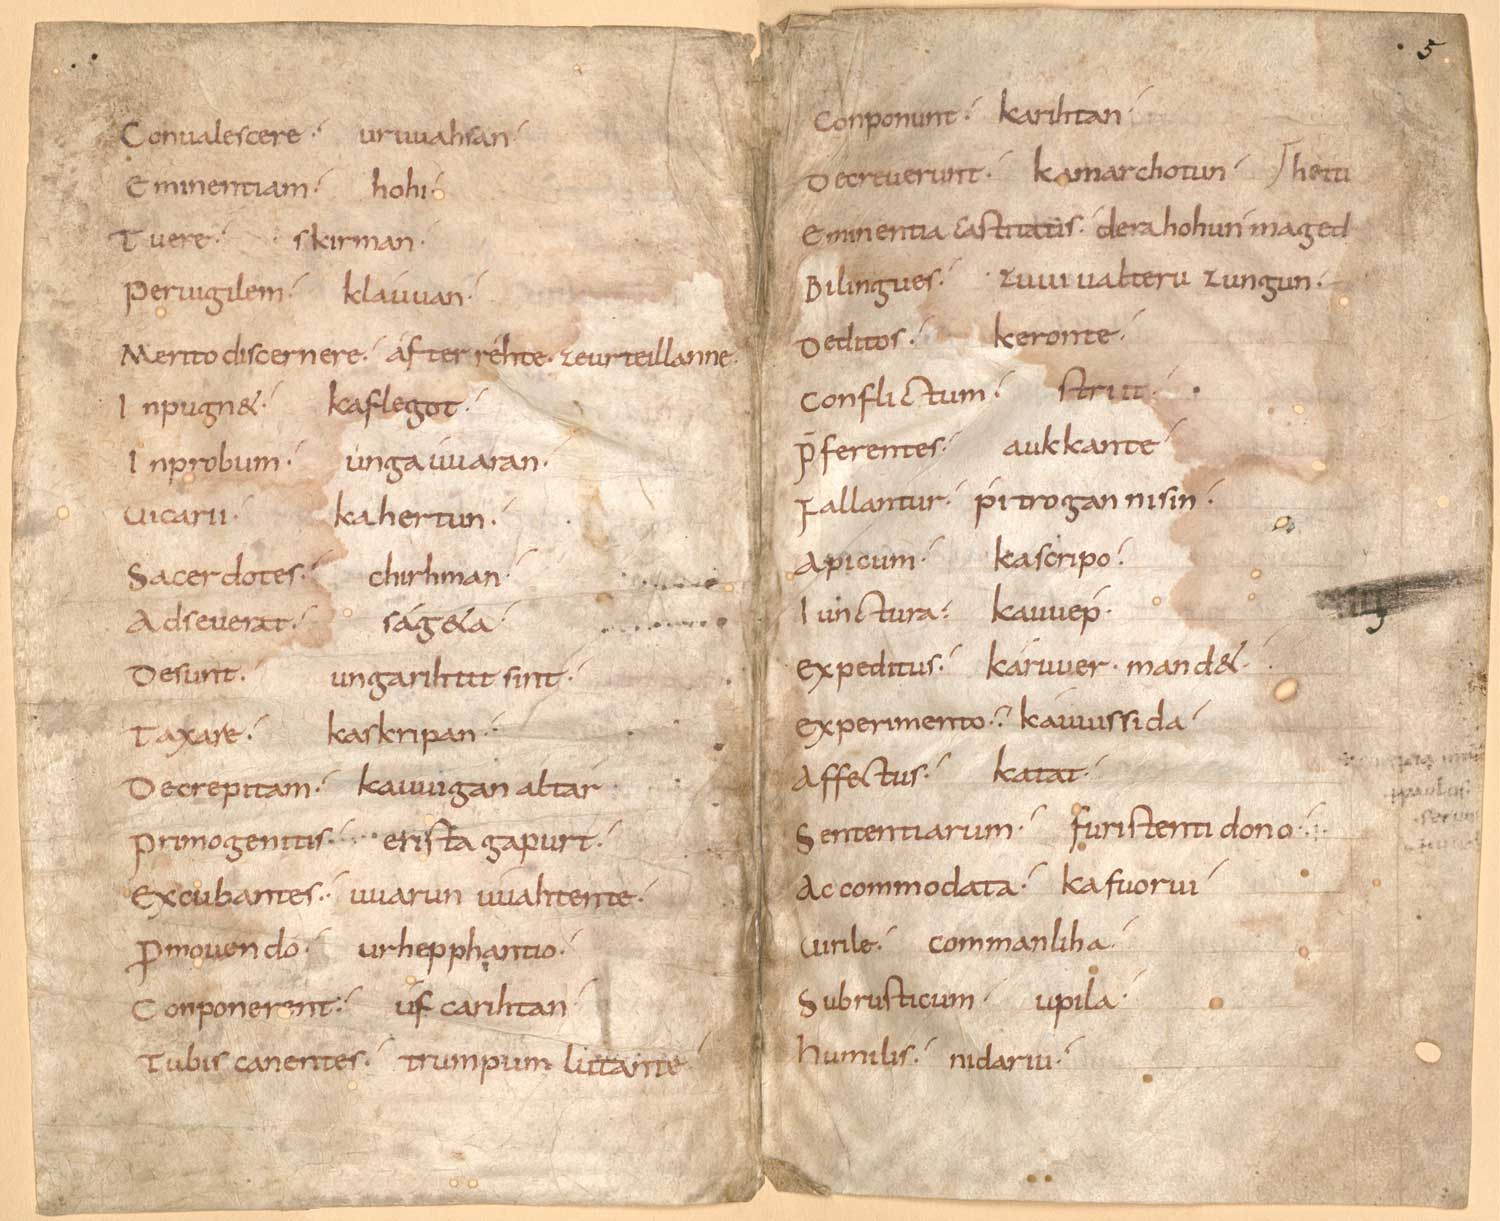 Conualescere uruuahsan
Eminentiam hohi
Tuere skirman
Peruigilem klauuan
Merito discernere áfter réhte zeurteillanne
Inpugn& kaflegot
Inprobum ungauuaran
Uicarii kahertun
Sacerdotes chirihman
Adseuerat ság&a
Desunt ungarihtit sint
Taxare kaskripan
Decrepitam kauuigan altar
Primogenitis erista gapurt
Excubantes uuarun uuahtente
P̱mouendo urhepphantio
Conponerent úf carihtan
Tubis canentes trumpum littante
5
Conponunt karihtan
Decreuerunt kamarchotun
Eminentia castitatis dera hohun maged
Bilingues zuuiualteru zungun
Deditos keronte
Conflictum striit
p̄ferentes aukkante
Fallantur pitrogan ni sin
Apicum kascripo
Iunctura kauuep
Expeditus karuuer mand&
Experimento kauuissida
Affectus katat
Sententiarum furistentidono
Accommodata kafuorui
Uirile commanliha
Subrusticum upila
Humilis nidarui